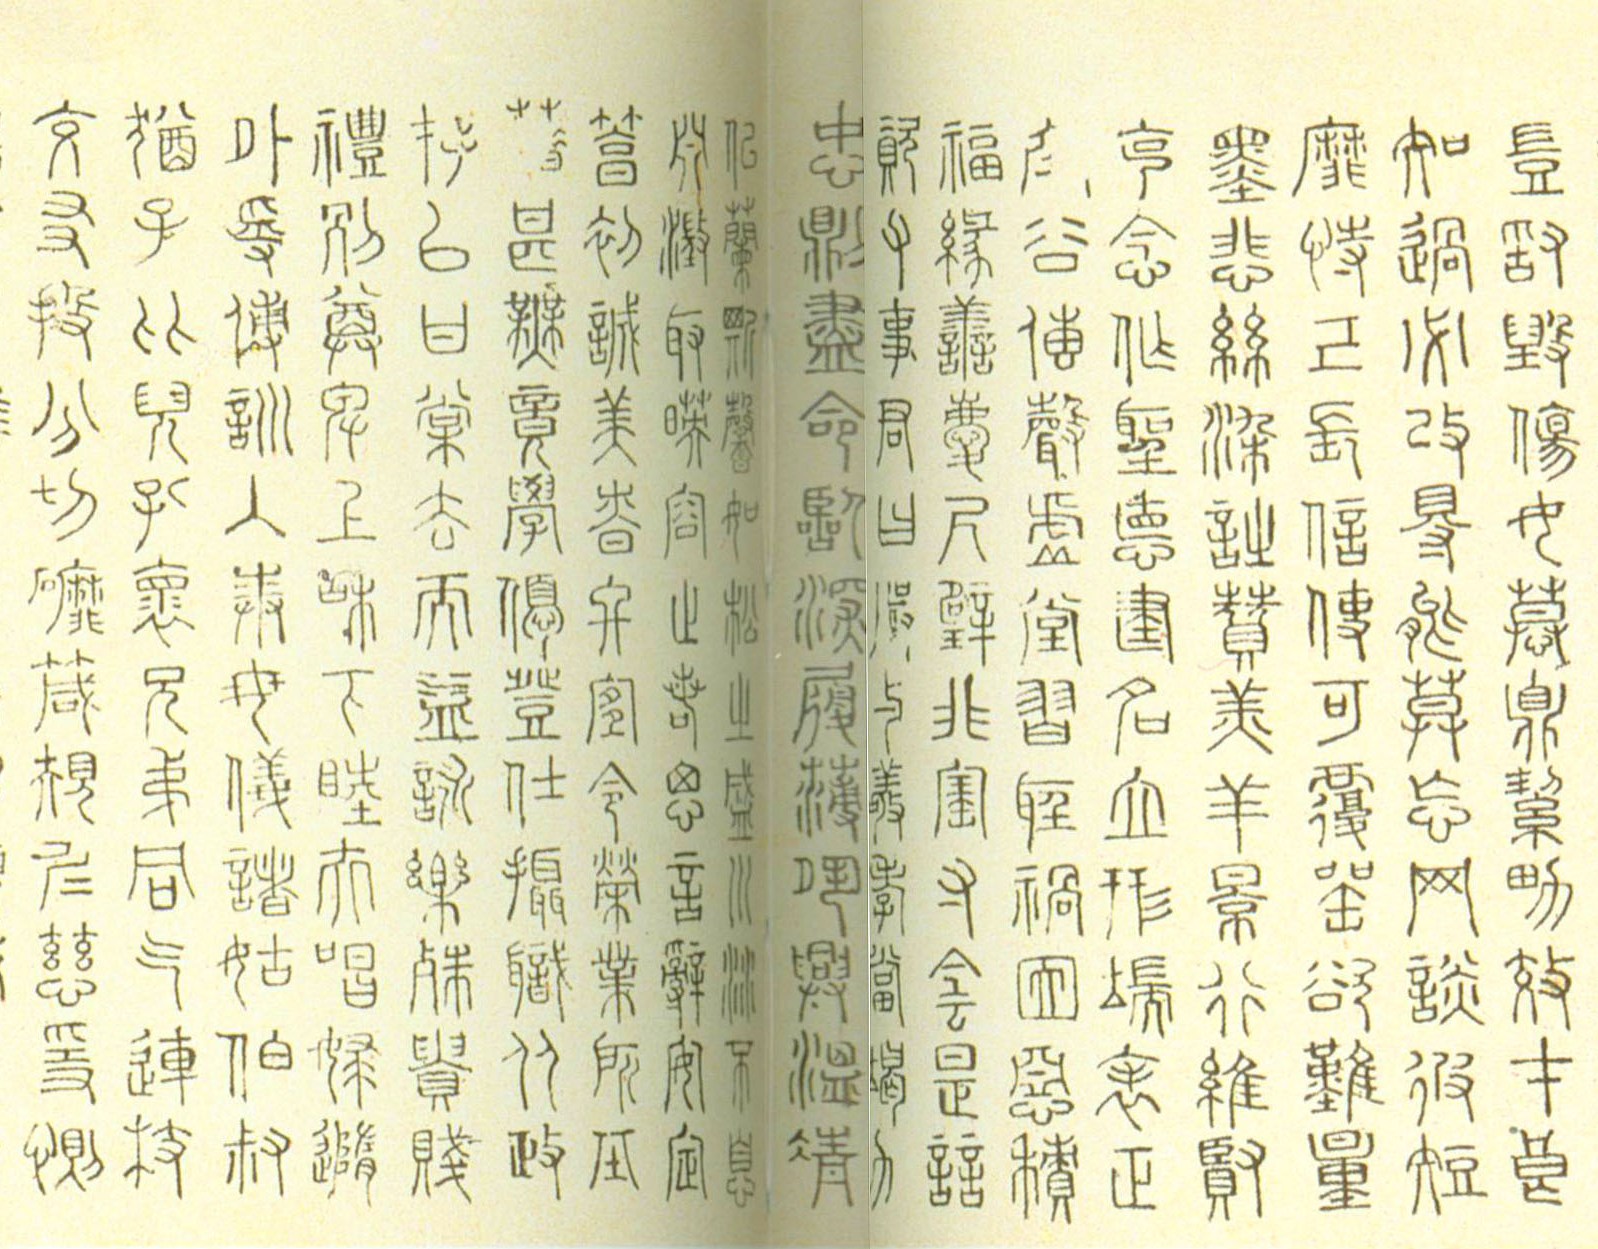 豈敢毀傷女慕貞絜男效才良
知過必改得能莫忘罔談彼短
靡恃己長信使可覆器欲難量
墨悲絲染詩贊羔羊景行維賢
克念作聖德建名立形端表正
空谷傳聲虛堂習聽禍因惡積
福緣善慶尺璧非寶寸陰是競
資父事君曰嚴與敬孝當竭力
忠則盡命臨深履薄夙興溫凊
似蘭斯馨如松之盛川流不息
淵澄取映容止若思言辭安定
篤初誠美慎終宜令榮業所基
籍甚無竟學優登仕攝職從政
存以甘棠去而益詠樂殊貴賤
禮別尊卑上和下睦夫唱婦隨
外受傅訓入奉母儀諸姑伯叔
猶子比兒孔懷兄弟同氣連枝
交友投分切磨箴規仁慈隱惻